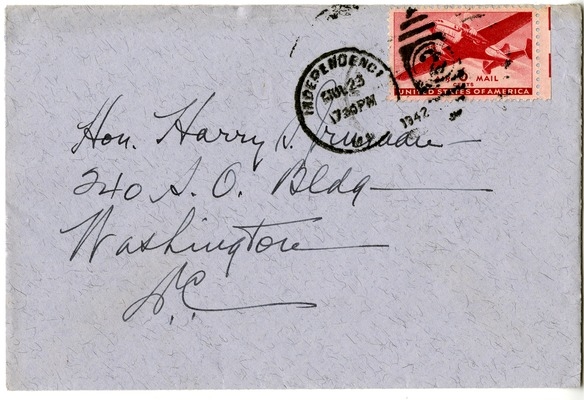 INDEPENDENCE
1942
AIR MAIL
CENTS
UNITED STATES OF AMERICA
Hon. Harry S. Truman
240 S. O. Bldg
Washington
D.C.